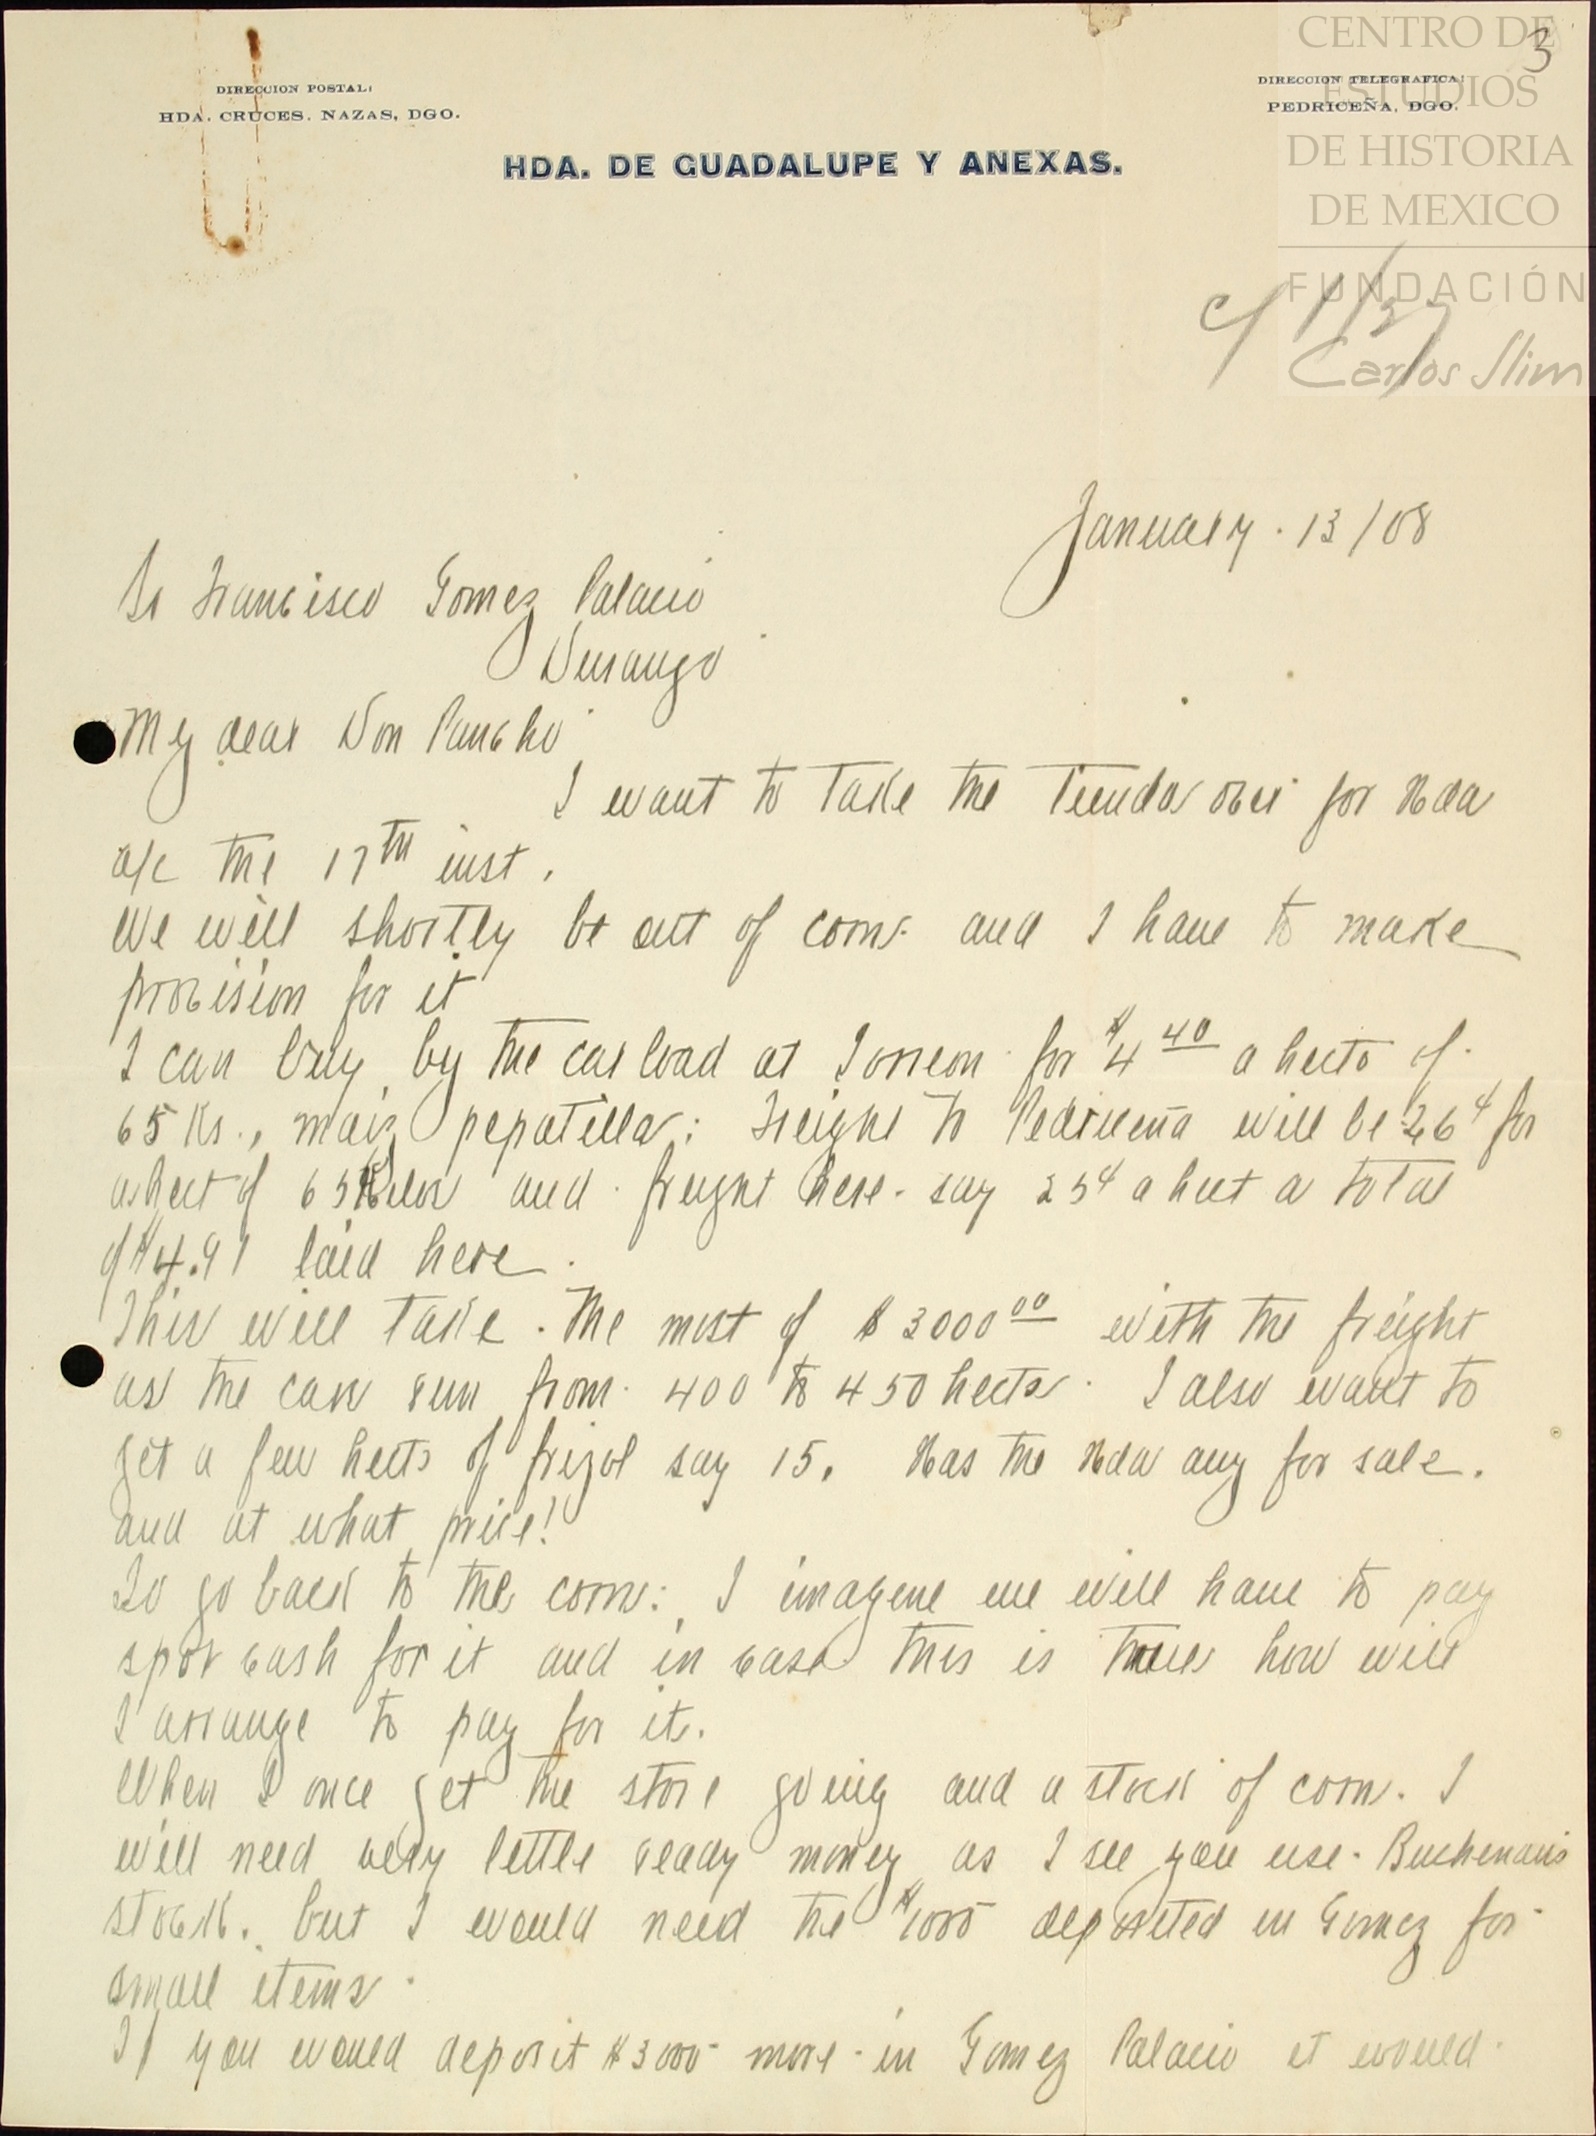 CENTRO DE
ESTUDIOS
DE HISTORIA
DE MEXICO
FUNDACIÓN
Carlos Slim
3
DIRECCION POSTAL:
HDA. CRUCES, NAZAS, DGO.
DIRECCION TELEGRAFICA:
PEDRICEÑA, DGO.
HDA. DE GUADALUPE Y ANEXAS.
January. 13/08
Sr Francisco Gomez Palacio
Durango
My dear Don Pancho
I want to take the Tienda over for Hda
a/c the 17th inst.
We will shortly be out of corn and I have to make
provision for it
I can buy by the car load at Torreon for $4 40 a hecto of
65 Ks., maiz pepatilla: Freight to Pedriceña will be 26¢ for
a hect of 65 Kilos and freight here say 25¢ a hect a total
of $4.91 laid here.
This will take the most of $3000 00 with the freight
as the cars run from 400 to 450 hects. I also want to
get a few hects of frijol say 15. Has the Hda any for sale.
and at what price!
To go back to the corn: I imagine we will have to pay
spot cash for it and in case this is true how will
I arrange to pay for it.
When I once get the store going and a stock of corn. I
will need very little ready money as I see you use Buchenau's
stock. but I would need the $1000 deposited in Gomez for
small items.
If you would deposit $3000 more in Gomez Palacio it would